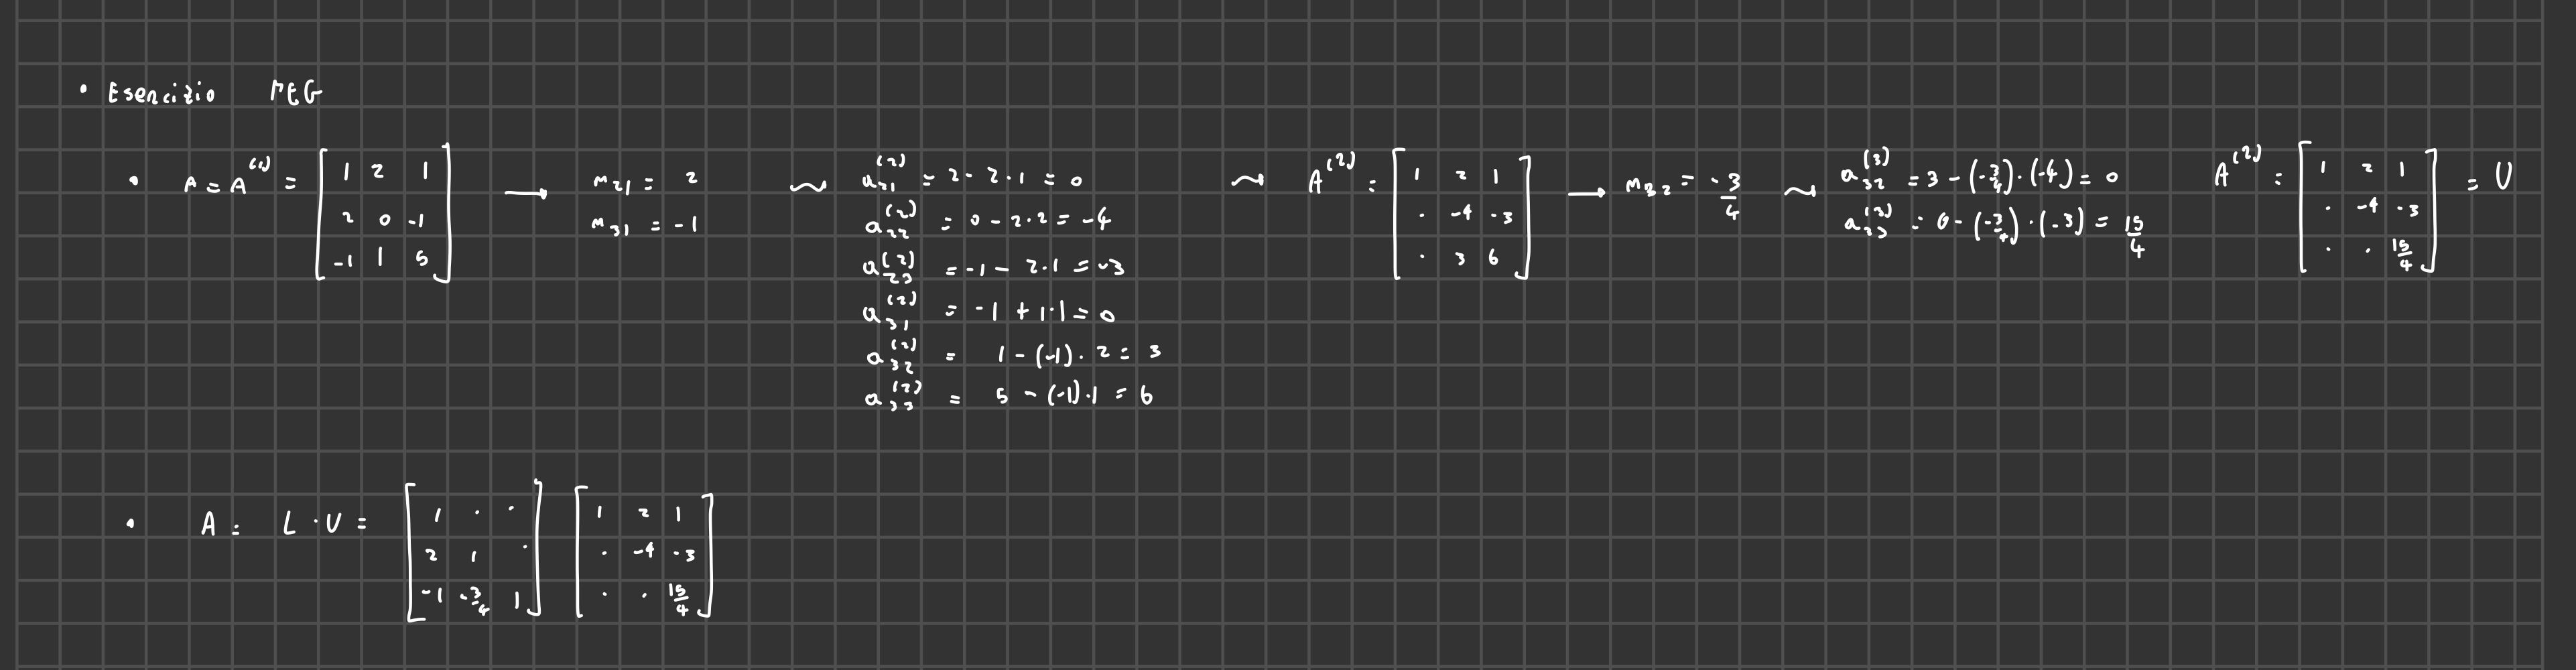 • Esercizio MEG
• A = A^(1) = [1 2 1; 2 0 -1; -1 1 5] → m_21 = 2, m_31 = -1
a_21^(2) = 2 - 2·1 = 0
a_22^(2) = 0 - 2·2 = -4
a_23^(2) = -1 - 2·1 = -3
a_31^(2) = -1 + 1·1 = 0
a_32^(2) = 1 - (-1)·2 = 3
a_33^(2) = 5 - (-1)·1 = 6
~ A^(2) = [1 2 1; · -4 -3; · 3 6] → m_32 = -3/4
~ a_32^(3) = 3 - (-3/4)·(-4) = 0
a_33^(3) = 6 - (-3/4)·(-3) = 15/4
A^(2) = [1 2 1; · -4 -3; · · 15/4] = U
• A = L·U = [1 · ·; 2 1 ·; -1 -3/4 1] [1 2 1; · -4 -3; · · 15/4]